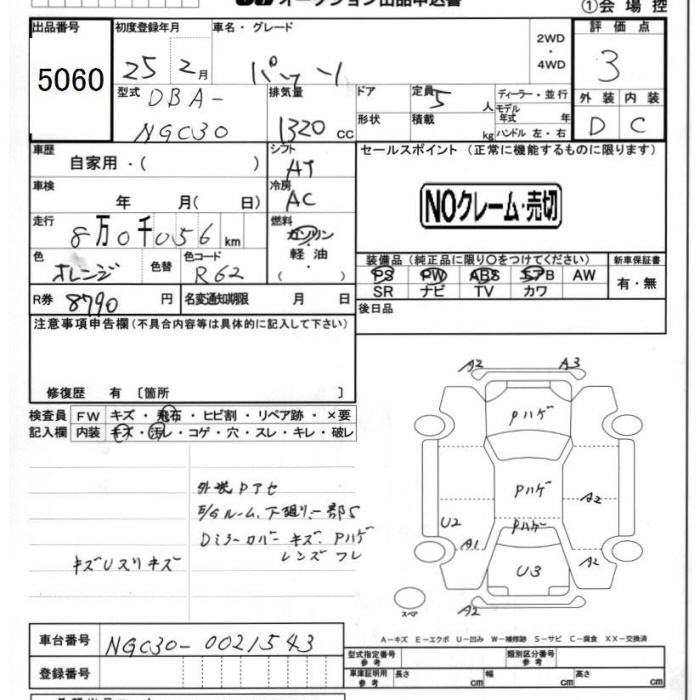 オークション出品申込書
①会場控
出品番号
5060
初度登録年月
25 2月
車名・グレード
パッソ
2WD
・
4WD
評価点
3
型式
DBA-
NGC30
排気量
1320 cc
ドア
定員
5人
ディーラー・並行
モデル
年式 年
形状
積載
kg
ハンドル 左・右
外装
D
内装
C
車歴
自家用・( )
シフト
AT
セールスポイント (正常に機能するものに限ります)
車検
年 月( 日)
冷房
AC
NOクレーム・売切
走行
8万0千056km
燃料
ガソリン
・
軽油
( )
色
オレンジ
色替
色コード
R62
装備品(純正品に限り○をつけてください)
PS PW ABS エアB AW
SR ナビ TV カワ
新車保証書
有・無
R券 8790円
名変通知期限 月 日
後日品
注意事項申告欄(不具合内容等は具体的に記入して下さい)
修復歴 有 〔箇所 〕
検査員
記入欄
FW キズ・飛石・ヒビ割・リペア跡・×要
内装 キズ・汚レ・コゲ・穴・スレ・キレ・破レ
外装Pアセ
E/Gルーム、下廻り、一部S
Dミラーカバーキズ、Pハゲ
レンズフレ
キズUスリキズ
A2 A3
Pハゲ
Pハゲ
A2
Pハゲ
U2
A1
A2
U3
A2
スペア
A-キズ E-エクボ U-凹み W-補修跡 S-サビ C-腐食 XX-交換済
車台番号
NGC30-0021543
型式指定番号
参考
類別区分番号
参考
登録番号
車庫証明用
参考
長さ cm
幅 cm
高さ cm